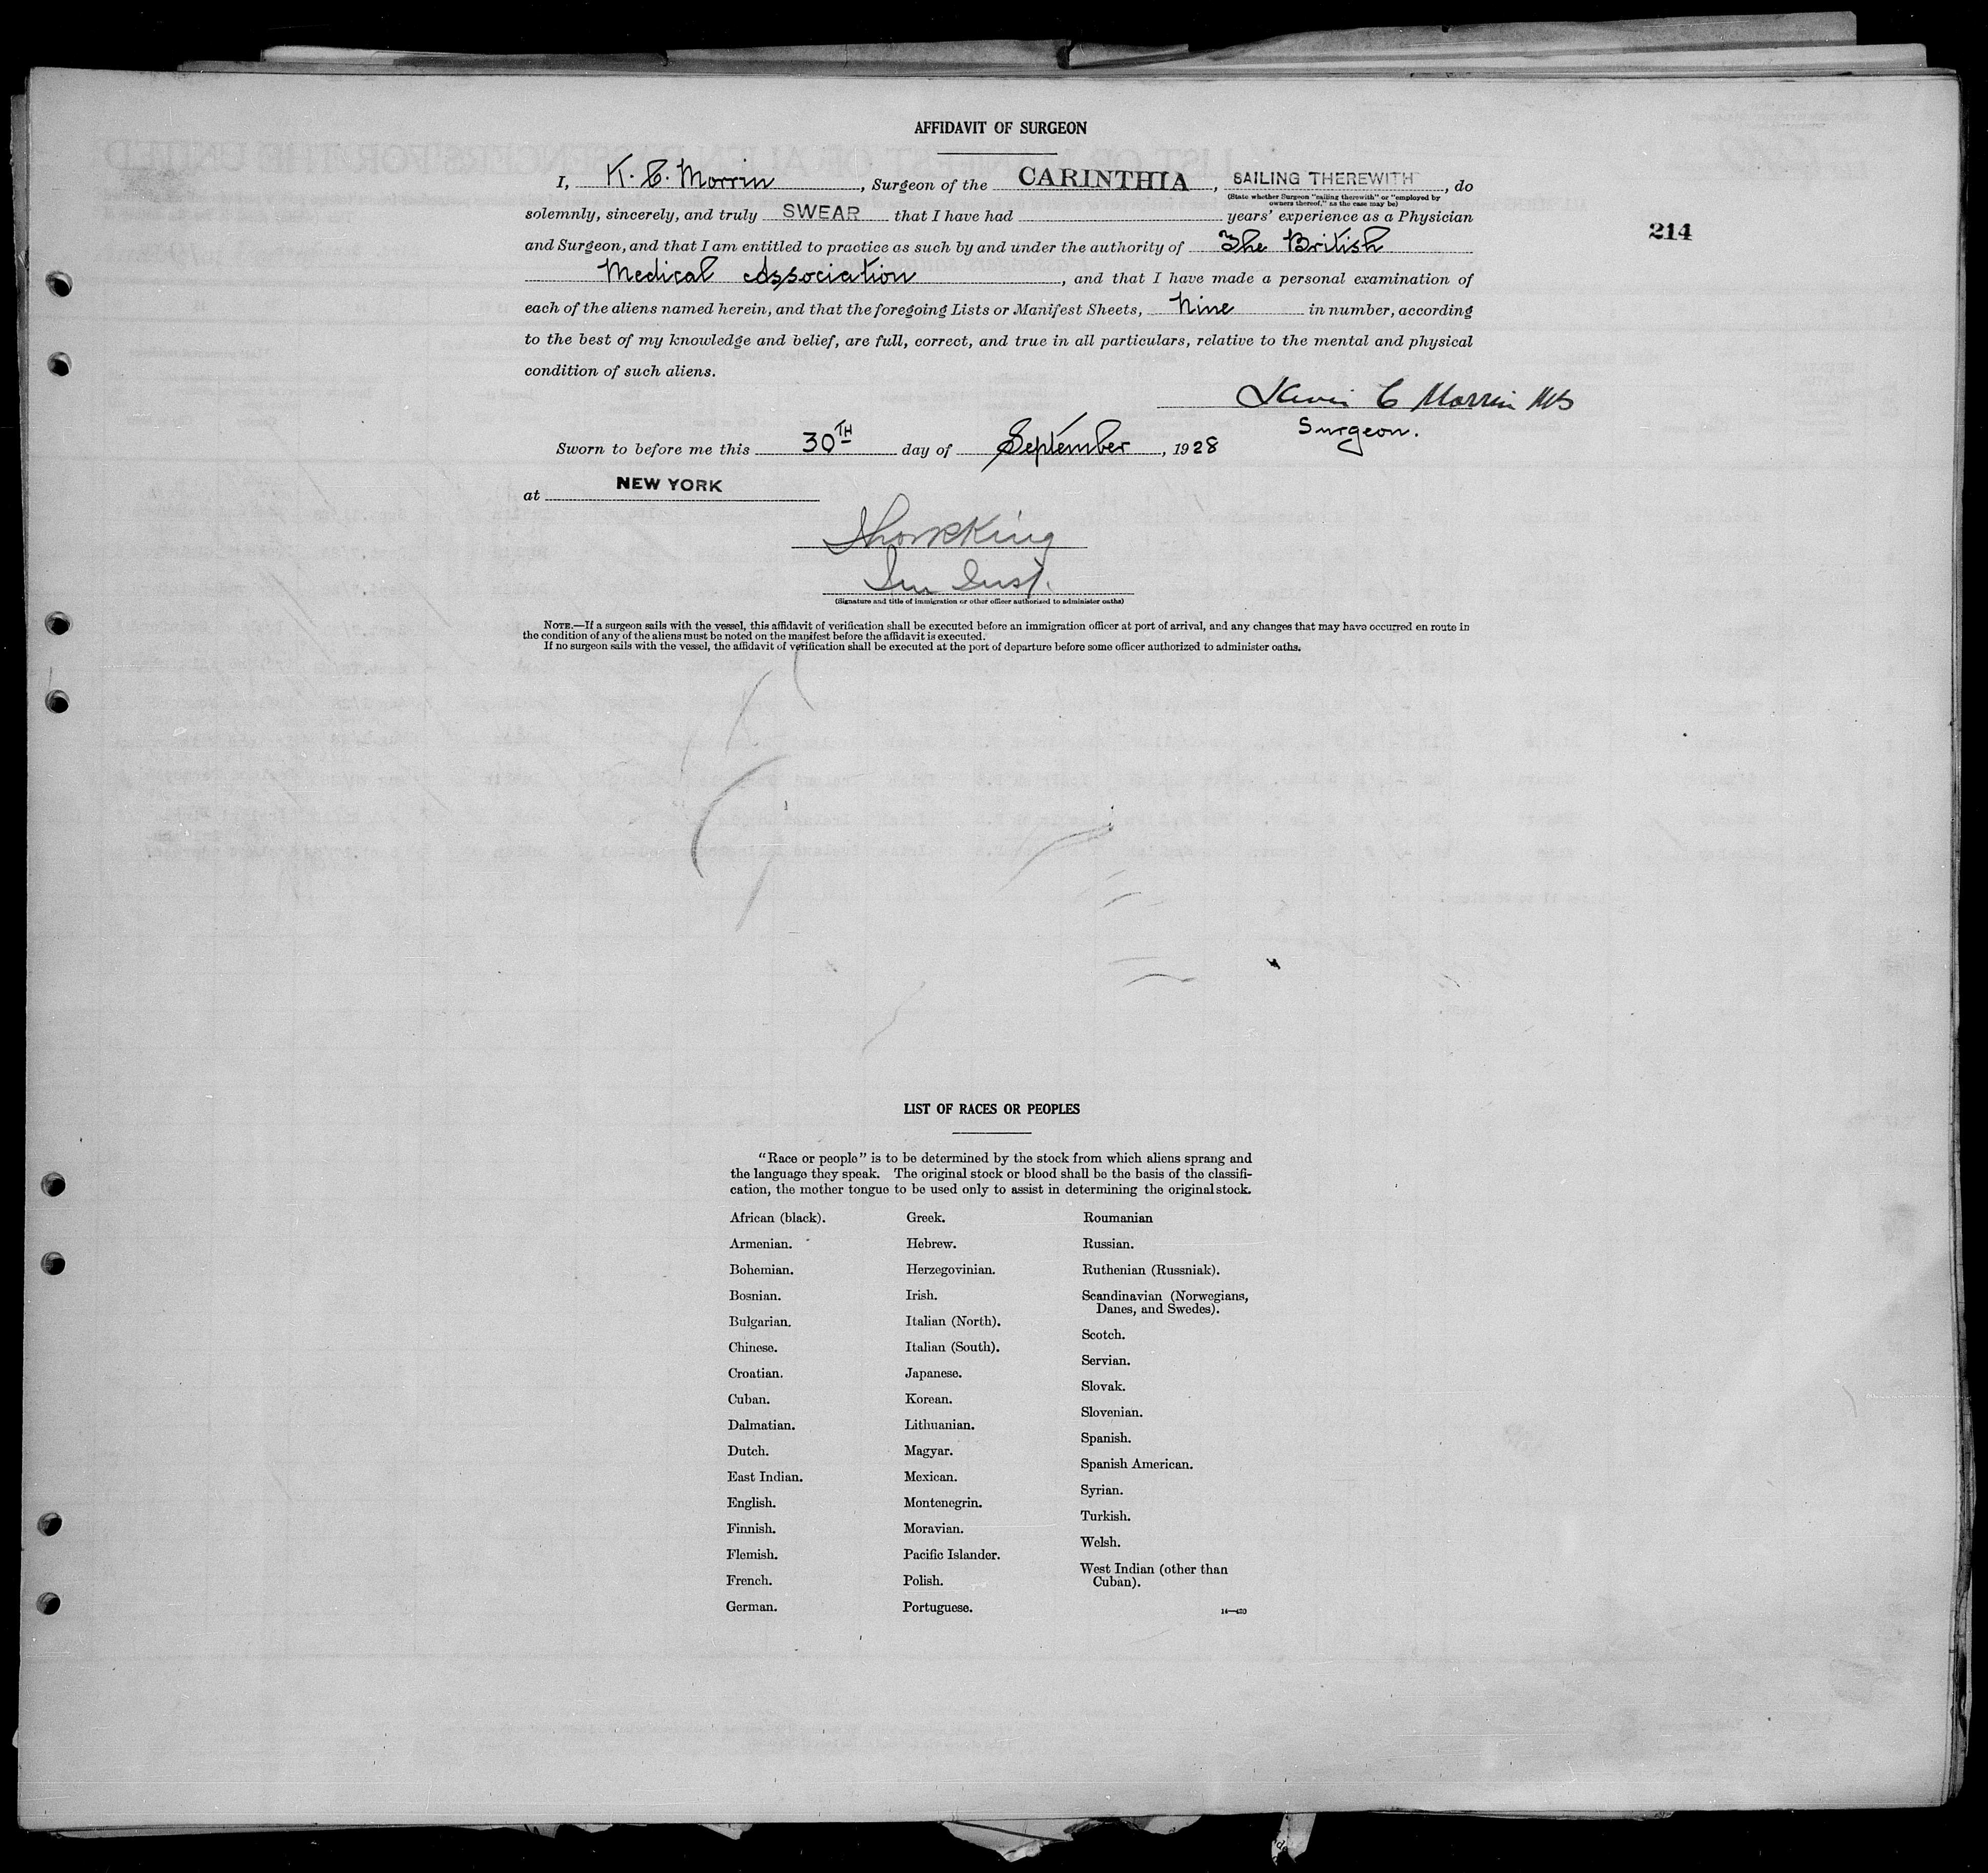 AFFIDAVIT OF SURGEON
I, K. C. Morrin, Surgeon of the CARINTHIA, SAILING THEREWITH, do
(State whether Surgeon "sailing therewith" or "employed by
owners thereof," as the case may be)
solemnly, sincerely, and truly SWEAR that I have had years' experience as a Physician
and Surgeon, and that I am entitled to practice as such by and under the authority of The British
214
Medical Association, and that I have made a personal examination of
each of the aliens named herein, and that the foregoing Lists or Manifest Sheets, Nine in number, according
to the best of my knowledge and belief, are full, correct, and true in all particulars, relative to the mental and physical
condition of such aliens.
Kevin C Morrin
Surgeon.
Sworn to before me this 30TH day of September, 1928
at NEW YORK
King
(Signature and title of immigration or other officer authorized to administer oaths)
NOTE.—If a surgeon sails with the vessel, this affidavit of verification shall be executed before an immigration officer at port of arrival, and any changes that may have occurred en route in
the condition of any of the aliens must be noted on the manifest before the affidavit is executed.
If no surgeon sails with the vessel, the affidavit of verification shall be executed at the port of departure before some officer authorized to administer oaths.
LIST OF RACES OR PEOPLES
"Race or people" is to be determined by the stock from which aliens sprang and
the language they speak. The original stock or blood shall be the basis of the classifi-
cation, the mother tongue to be used only to assist in determining the original stock.
African (black).
Armenian.
Bohemian.
Bosnian.
Bulgarian.
Chinese.
Croatian.
Cuban.
Dalmatian.
Dutch.
East Indian.
English.
Finnish.
Flemish.
French.
German.
Greek.
Hebrew.
Herzegovinian.
Irish.
Italian (North).
Italian (South).
Japanese.
Korean.
Lithuanian.
Magyar.
Mexican.
Montenegrin.
Moravian.
Pacific Islander.
Polish.
Portuguese.
Roumanian
Russian.
Ruthenian (Russniak).
Scandinavian (Norwegians,
Danes, and Swedes).
Scotch.
Servian.
Slovak.
Slovenian.
Spanish.
Spanish American.
Syrian.
Turkish.
Welsh.
West Indian (other than
Cuban).
14—430